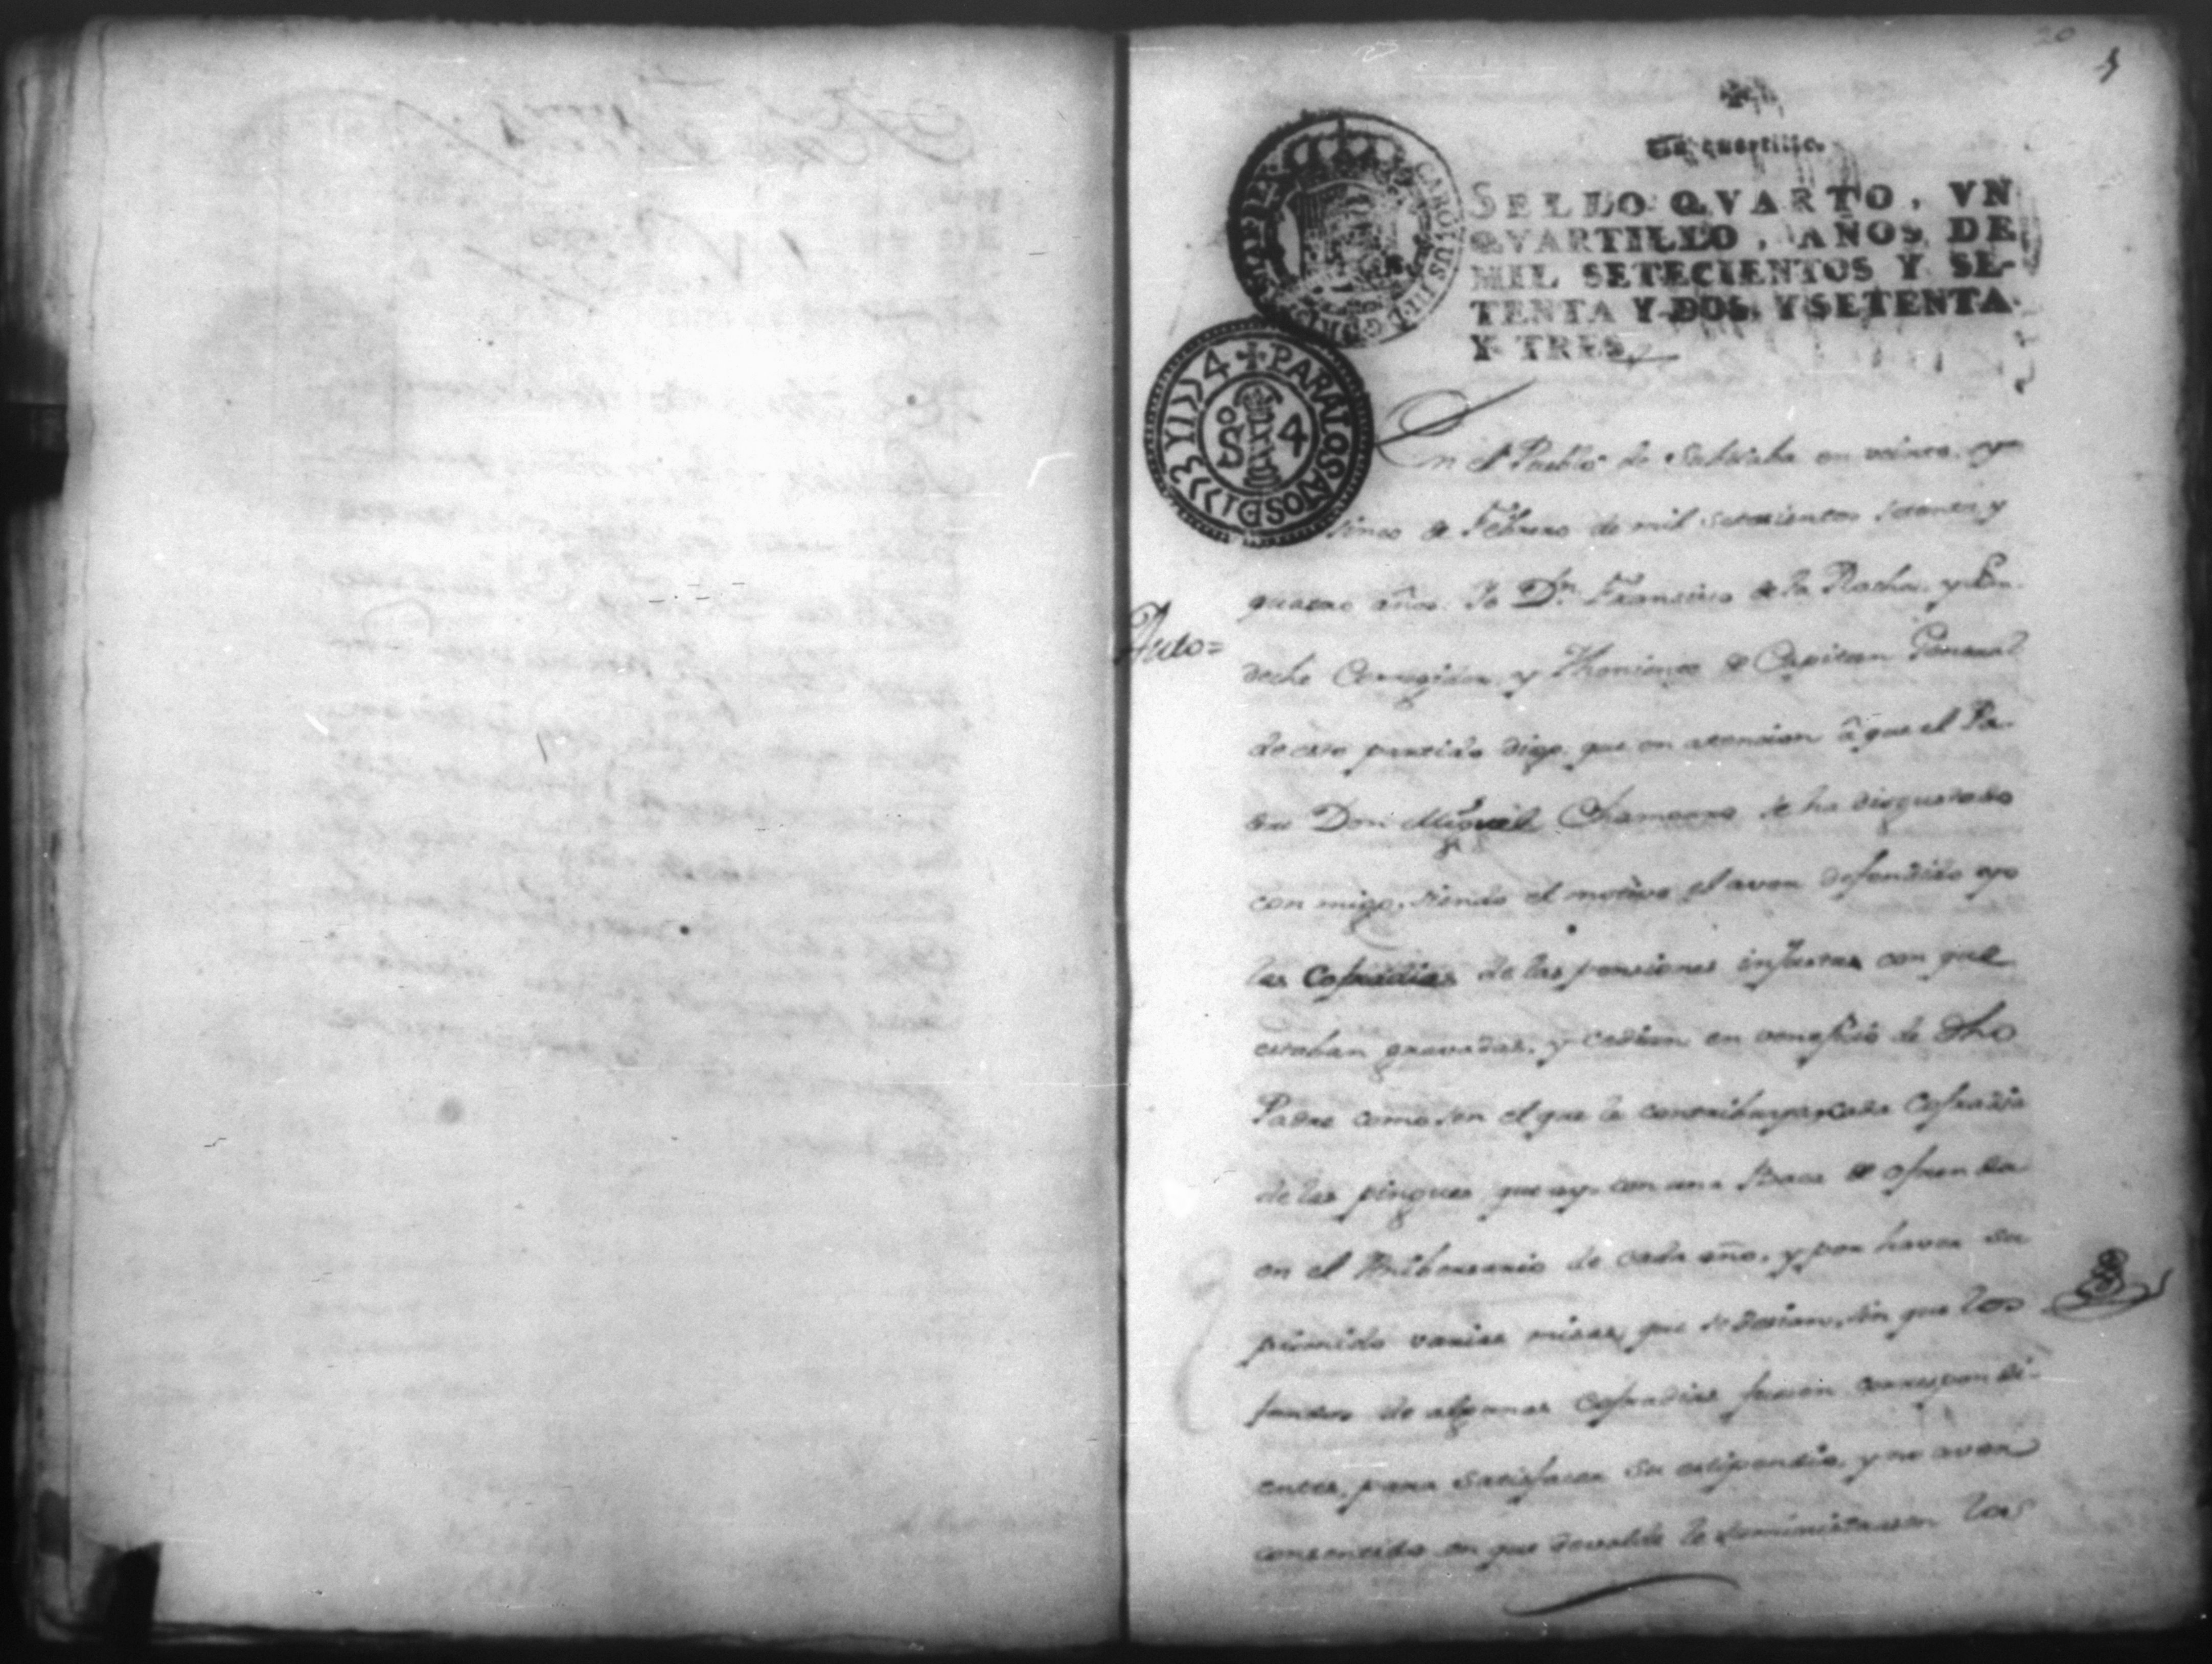 20
Un quartillo.
SELLO QVARTO, VN
QVARTILLO, AÑOS DE
MIL SETECIENTOS Y SE-
TENTA Y DOS, Y SETENTA
Y TRES.
CAROLUS III D G
+ PARA LOS AÑOS D 1773 Y 1774
So 4
En el Pueblo de Subtiaba en veinte, y
sinco de Febrero de mil setecientos setenta y
quatro años. Yo Dn. Francisco de la Rocha, y
Auto=
Corregidor, y Theniente de Capitan General
de este partido digo, que en atencion â que el Pa-
dre Don Miguel Chamorro se ha disgustado
con migo, siendo el motivo el aver defendido yo
las Cofradias de las penciones injustas con que
estaban gravadas, y cedian en veneficio de dho
Padre como son el que le contribuya cada Cofradia
de las pingues que ay, con una de ofrenda
en el Anibersario de cada año, y por haver su
primido varias misas, que se desian, sin que los
fondos de algunas Cofradias fuesen correspondi-
entes, para satisfacer su estipendio, y no aver
consentido en que devalde le suministrasen los